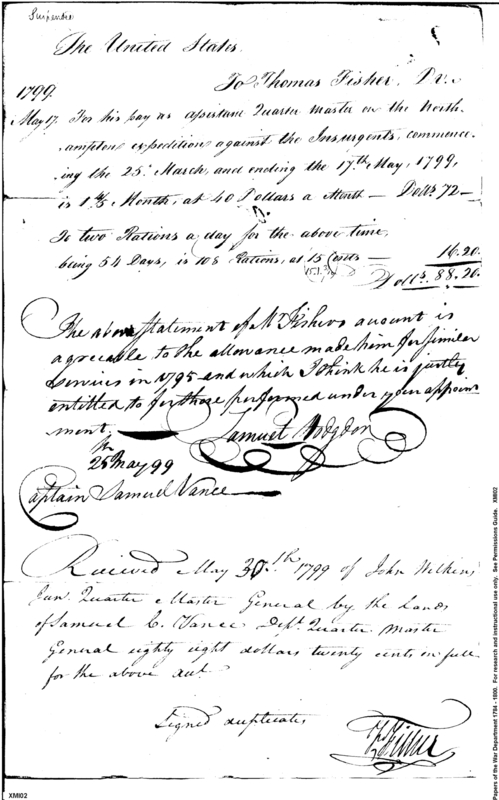 The United States
To Thomas Fisher, Dr.
1799
May 17. For his pay as assistant Quarter master on the North-
ampton expedition against the Insurgents, commenc-
ing the 25. March, and ending the 17th May, 1799,
is 1 4/5 Month, at 40 Dollars a Month — Dolls 72 —
To two Rations a day for the above time,
being 54 Days, is 108 Rations, at 15 Cents — 16.20
Dolls. 88.20
The above statement of Mr Fishers account is
agreeable to the allowance made him for similar
services in 1795 and which I think he is justly
entitled to for those performed under your appoint
ment.
Samuel Hodgdon
25 May 99
Captain Samuel Vance
Received May 30th 1799 of John Wilkins
Jun. Quarter Master General by the hands
of Samuel C. Vance Dept. Quarter Master
General eighty eight dollars twenty cents in full
for the above act.
Signed duplicates
Fisher
XMI02
Papers of the War Department 1784 - 1800. For research and instructional use only. See Permissions Guide. XMI02